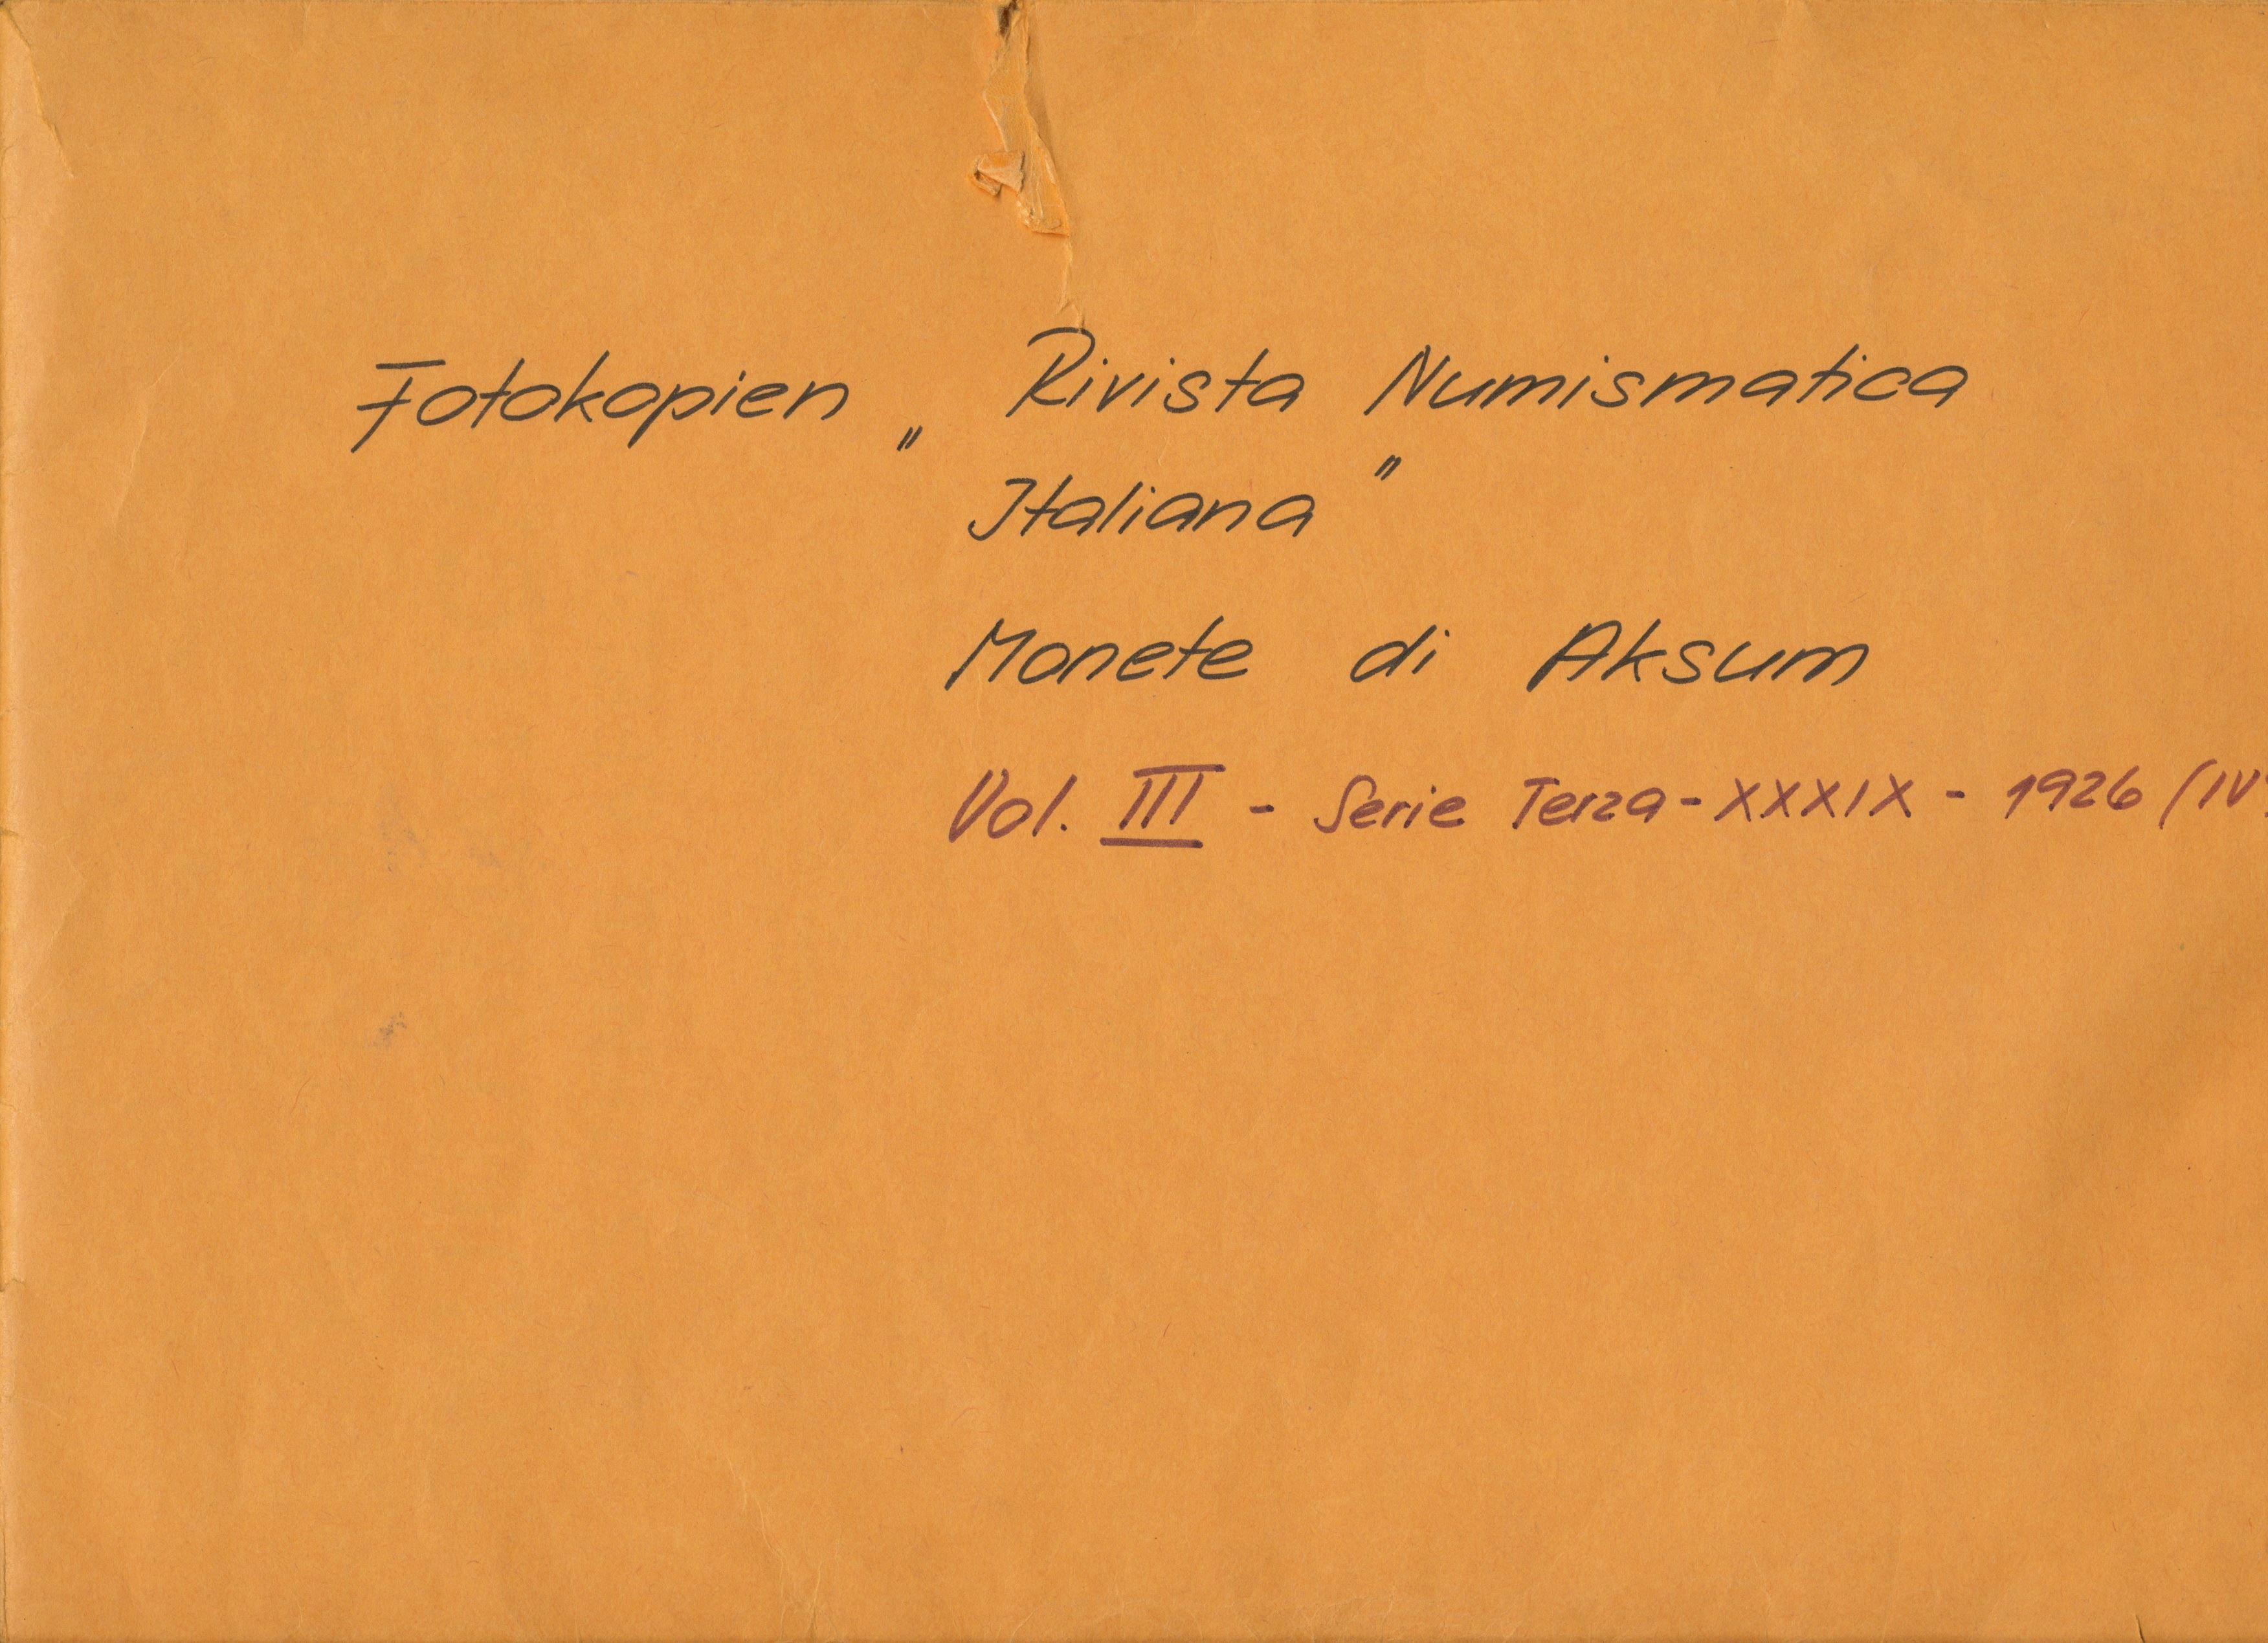 Fotokopien „ Rivista Numismatica
Italiana "
Monete di Aksum
Vol. III - Serie Terza - XXXIX - 1926 (IV